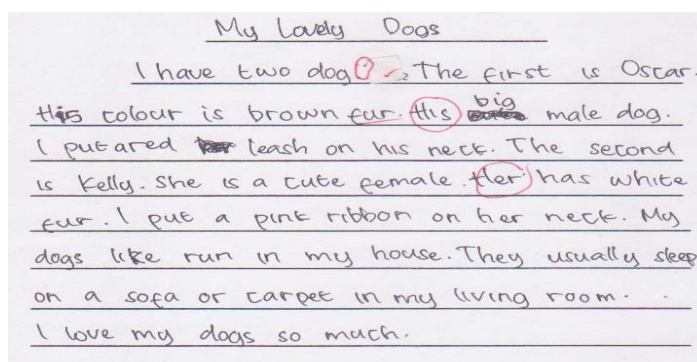 My Lovely Dogs
I have two dog. The first is Oscar.
His colour is brown fur. His big male dog.
I put a red leash on his neck. The second
is Kelly. She is a cute female. Her has white
fur. I put a pink ribbon on her neck. My
dogs like run in my house. They usually sleep
on a sofa or carpet in my living room.
I love my dogs so much.